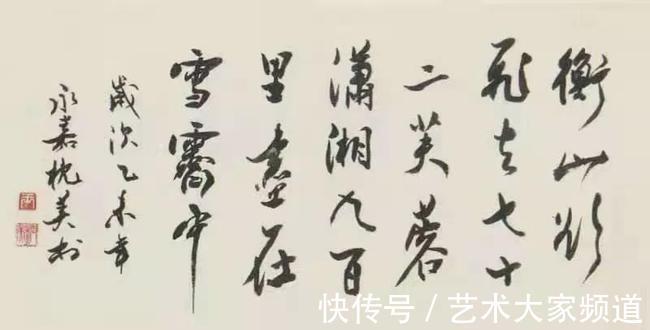 衡山欲
飛去七十
二芙蓉
瀟湘九百
里盡在
雪霽中
歲次乙未年
永嘉枕美
快传号 / 艺术大家频道